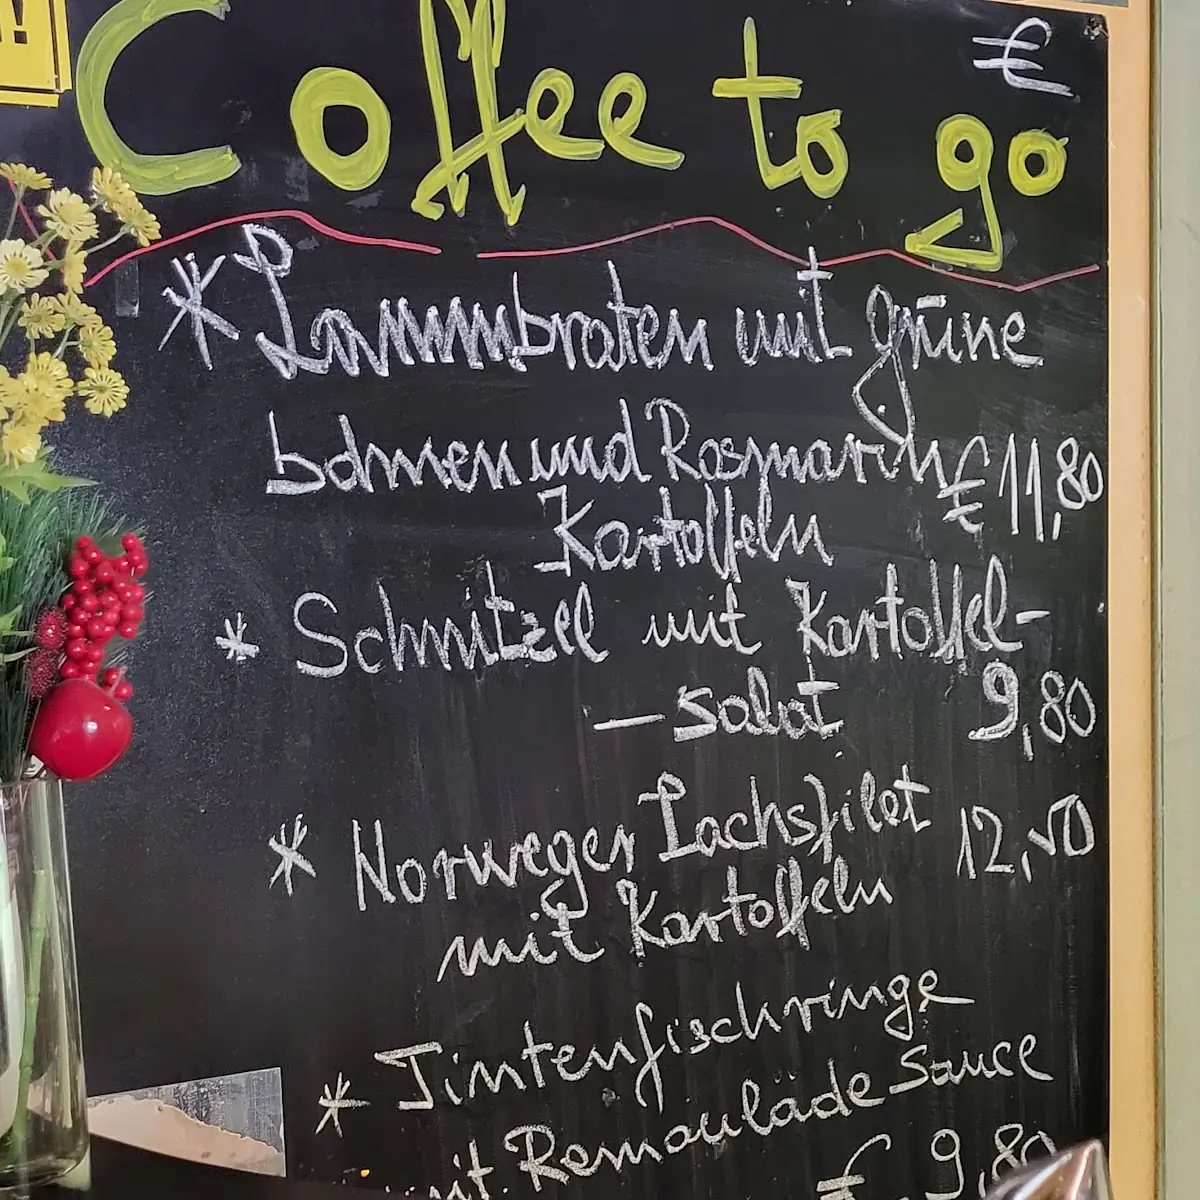 !
Coffee to go
€
* Lammbraten mit grüne
bohnen und Rosmarin € 11,80
Kartoffeln
* Schnitzel mit Kartoffel-
- salat 9,80
* Norweger Lachsfilet 12,50
mit Kartoffeln
* Tintenfischringe
mit Remouläde Sauce
€ 9,80